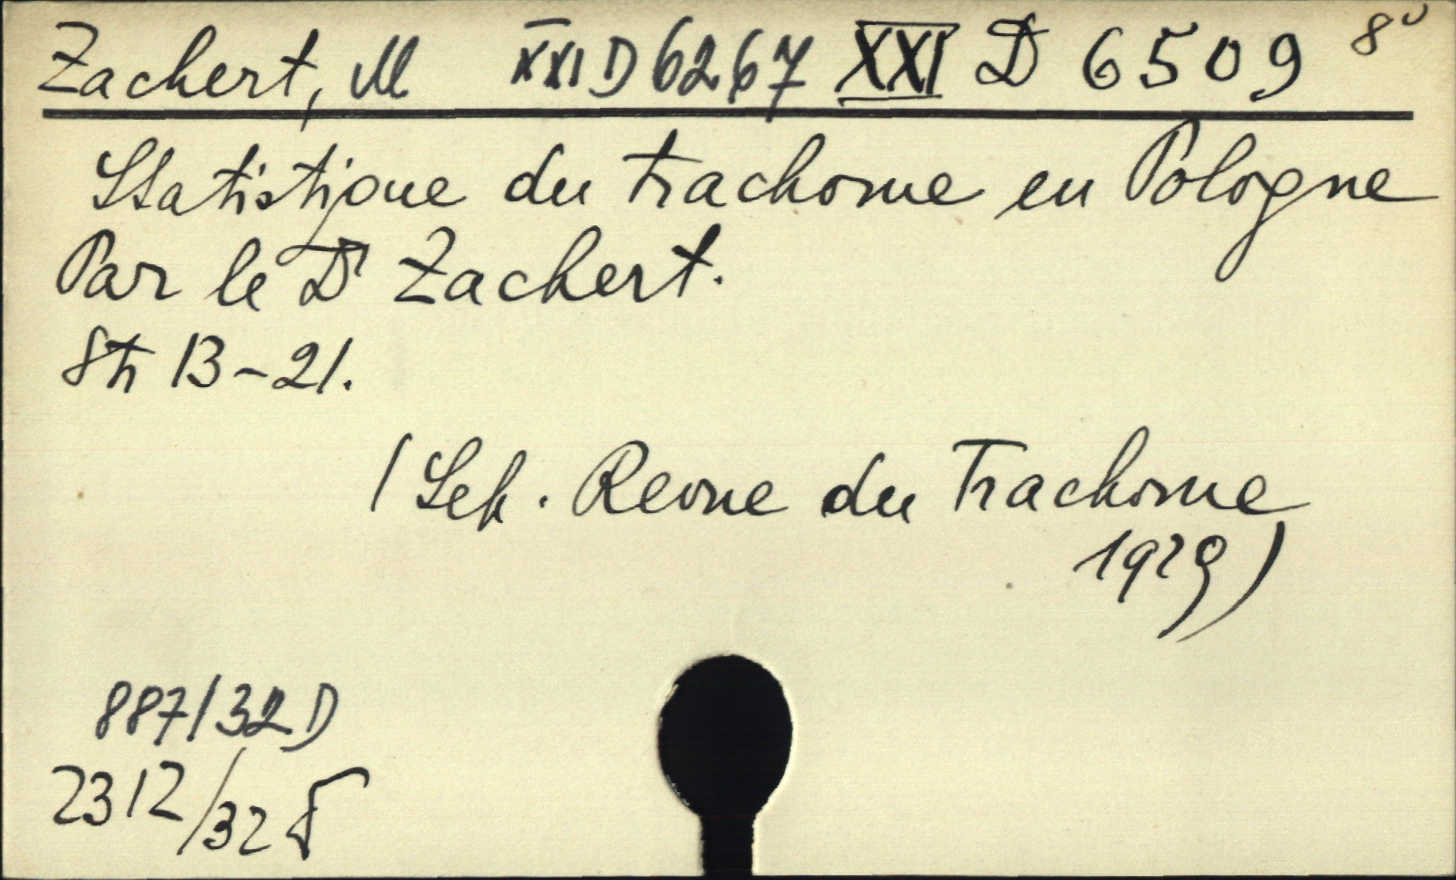 Zachert, M XXI D 6267 XXI D 6509 8°
Statistique du trachome en Pologne
Par le Dr Zachert.
Str 13-21.
(Seh. Revue du Trachome
1929)
887/32 D
2312/32